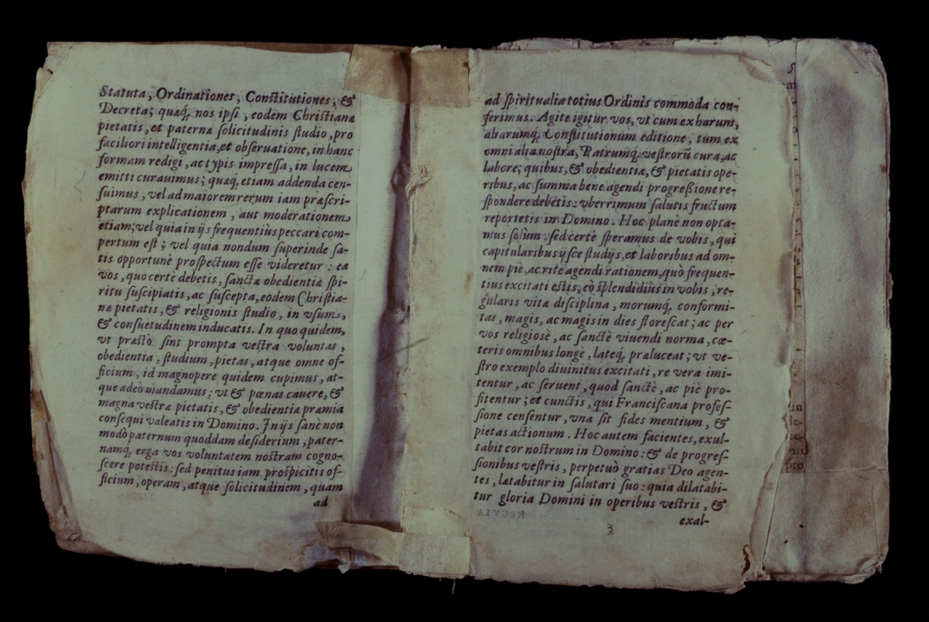 Statuta, Ordinationes, Constitutiones, &
Decreta; quæq́; nos ipsi, eodem Christianæ
pietatis, et paternæ solicitudinis studio, pro
faciliori intelligentia, et obseruatione, in hanc
formam redigi, ac typis impressa, in lucem
emitti curauimus; quæq́; etiam addenda cen-
suimus, vel ad maiorem rerum iam præscri-
ptarum explicationem, aut moderationem
etiam; vel quia in ijs frequentius peccari com-
pertum est; vel quia nondum superinde sa-
tis opportunè prospectum esse videretur: ea
vos, quo certè debetis, sanctæ obedientiæ spi-
ritu suscipiatis, ac suscepta, eodem Christia-
næ pietatis, & religionis studio, in vsum,
& consuetudinem inducatis. In quo quidem,
vt præstò sint prompta vestra voluntas,
obedientia, studium, pietas, atque omne of-
ficium, id magnopere quidem cupimus, at-
que adeò mandamus; vt & pœnas cauere, &
magna vestræ pietatis, & obedientiæ præmia
consequi valeatis in Domino. In ijs sanè non
modò paternum quoddam desiderium, pater-
namq́; erga vos voluntatem nostram cogno-
scere potestis: sed penitus iam prospicitis of-
ficium, operam, atque solicitudinem, quam
ad
ad spiritualia totius Ordinis commoda con-
ferimus. Agite igitur vos, vt cum ex harum,
aliarumq́; Constitutionum editione, tum ex
omni alia nostra, Patrumq́; vestrorū cura, ac
labore; quibus, & obedientiæ, & pietatis ope-
ribus, ac summa bene agendi progreßione re-
spondere debetis: vberrimum salutis fructum
reportetis in Domino. Hoc planè non opta-
mus solùm, sed certè speramus de vobis, qui
capitularibus ijsce studijs, et laboribus ad om-
nem piè, ac ritè agendi rationem, quò frequen-
tius excitati estis, eò splendidius in vobis, re-
gularis vitæ disciplina, morumq́; conformi-
tas, magis, ac magis in dies florescat; ac per
vos religiosè, ac sanctè viuendi norma, cæ-
teris omnibus longè, lateq́; præluceat; vt ve-
stro exemplo diuinitus excitati, re vera imi-
tentur, ac seruent, quod sanctè, ac piè pro-
fitentur; et cunctis, qui Franciscana profes-
sione censentur, vna sit fides mentium, &
pietas actionum. Hoc autem facientes, exul-
tabit cor nostrum in Domino: & de progres-
sionibus vestris, perpetuò gratias Deo agen-
tes, lætabitur in salutari suo: quia dilatabi-
tur gloria Domini in operibus vestris, &
exal-
3